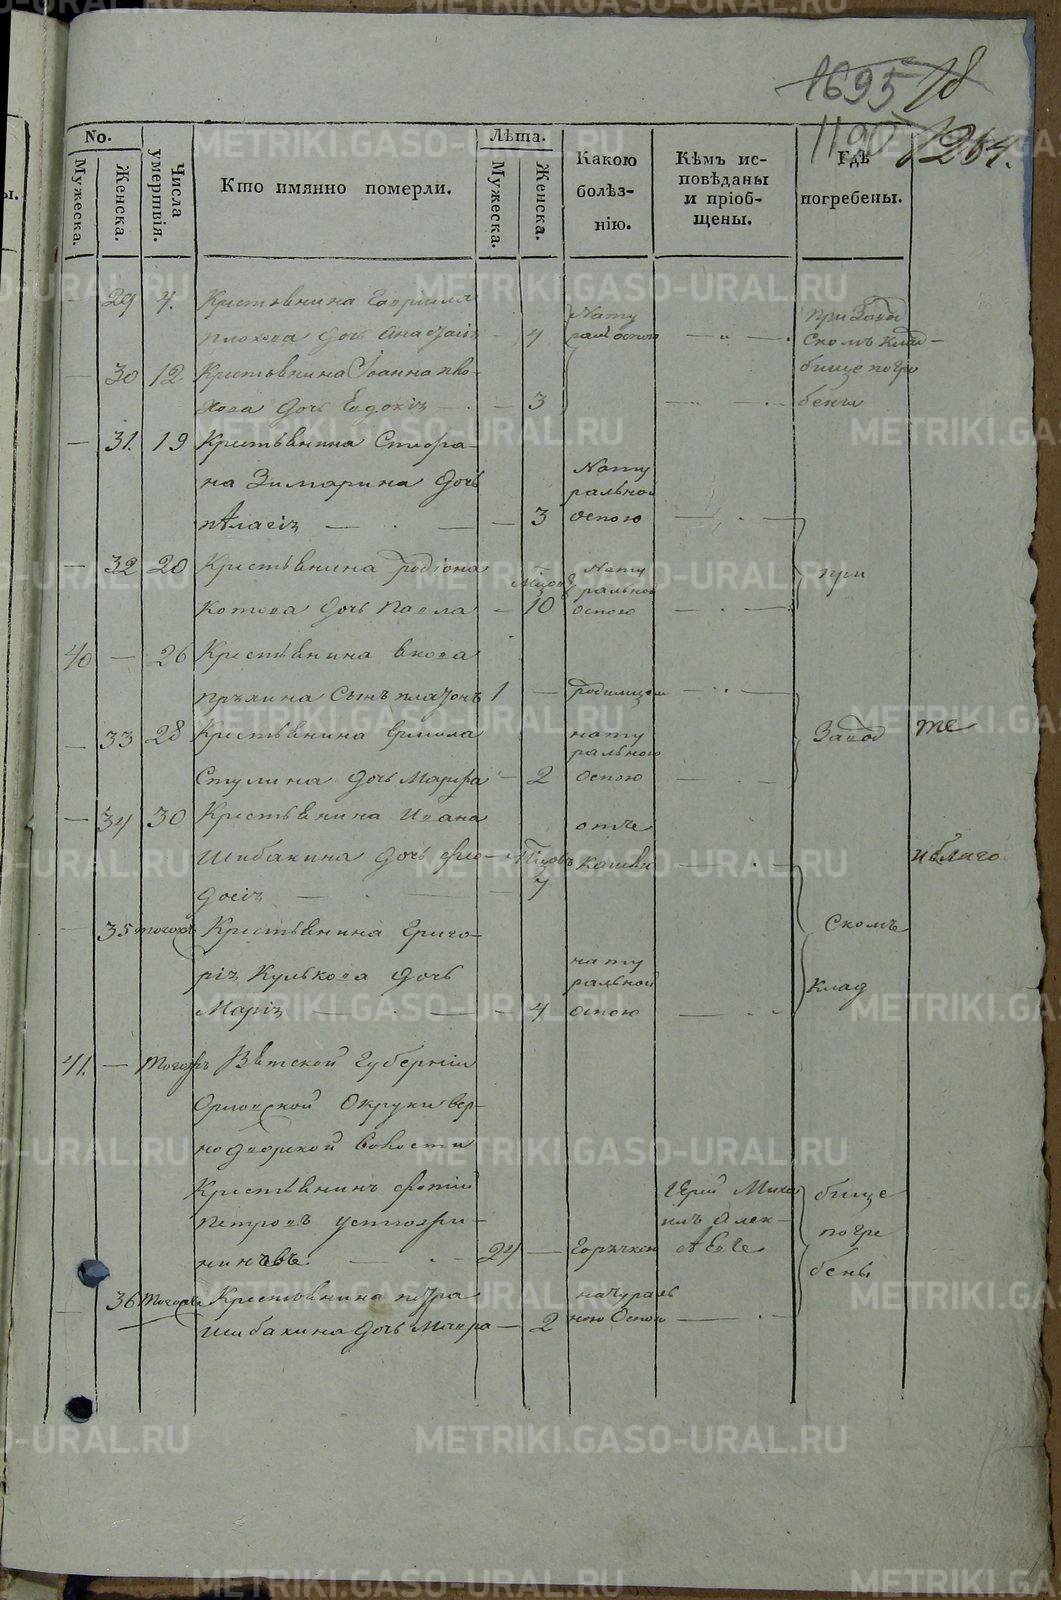 1695 18
1190 1264.
No.
Мужеска.
Женска.
Числа умертвія.
Кто имянно померли.
Лѣта.
Мужеска.
Женска.
Какою болѣз-
нію.
Кѣмъ ис-
повѣданы
и пріоб-
щены.
Гдѣ
погребены.
29 7. Крестьянина Гаврила
Плохова дочь Анастасія 4 Нату
ральною оспою
при Завод
скомъ клад-
бище погре
бены
30 12 Крестьянина Іоанна Пло-
хова дочь Евдокія 3
31. 19 Крестьянина Стефа-
на Зимарина дочь
Пелагія 3 Нату
ральною
оспою
32 20 Крестьянина Родіона
Котова дочь Павла 10 Нату
ральною
оспою
при
40 26 Крестьянина
сынъ Платонъ 1 родимцом
33 28 Крестьянина Ермила
Стулина дочь Марфа 2 нату
ральною
оспою
Завод
же
34 30 Крестьянина Ивана
Шибакина дочь Фео-
досія 7 отъ
кашля
и благо
35 тогожъ Крестьянина Григо-
рія Кулькова дочь
Марія 4 нату
ральной
оспою
скомъ
клад
41. тогожъ Вятской Губерніи
Орловской Округи Вер-
ходворской волости
Крестьянинъ Фотій
Петровъ
24 Горячкою
Іерей Миха
илъ Алек-
бище
погре
бены
36 тогожъ Крестьянина Петра
Шибакина дочь Мавра 2 натураль
ною оспою
METRIKI.GASO-URAL.RU